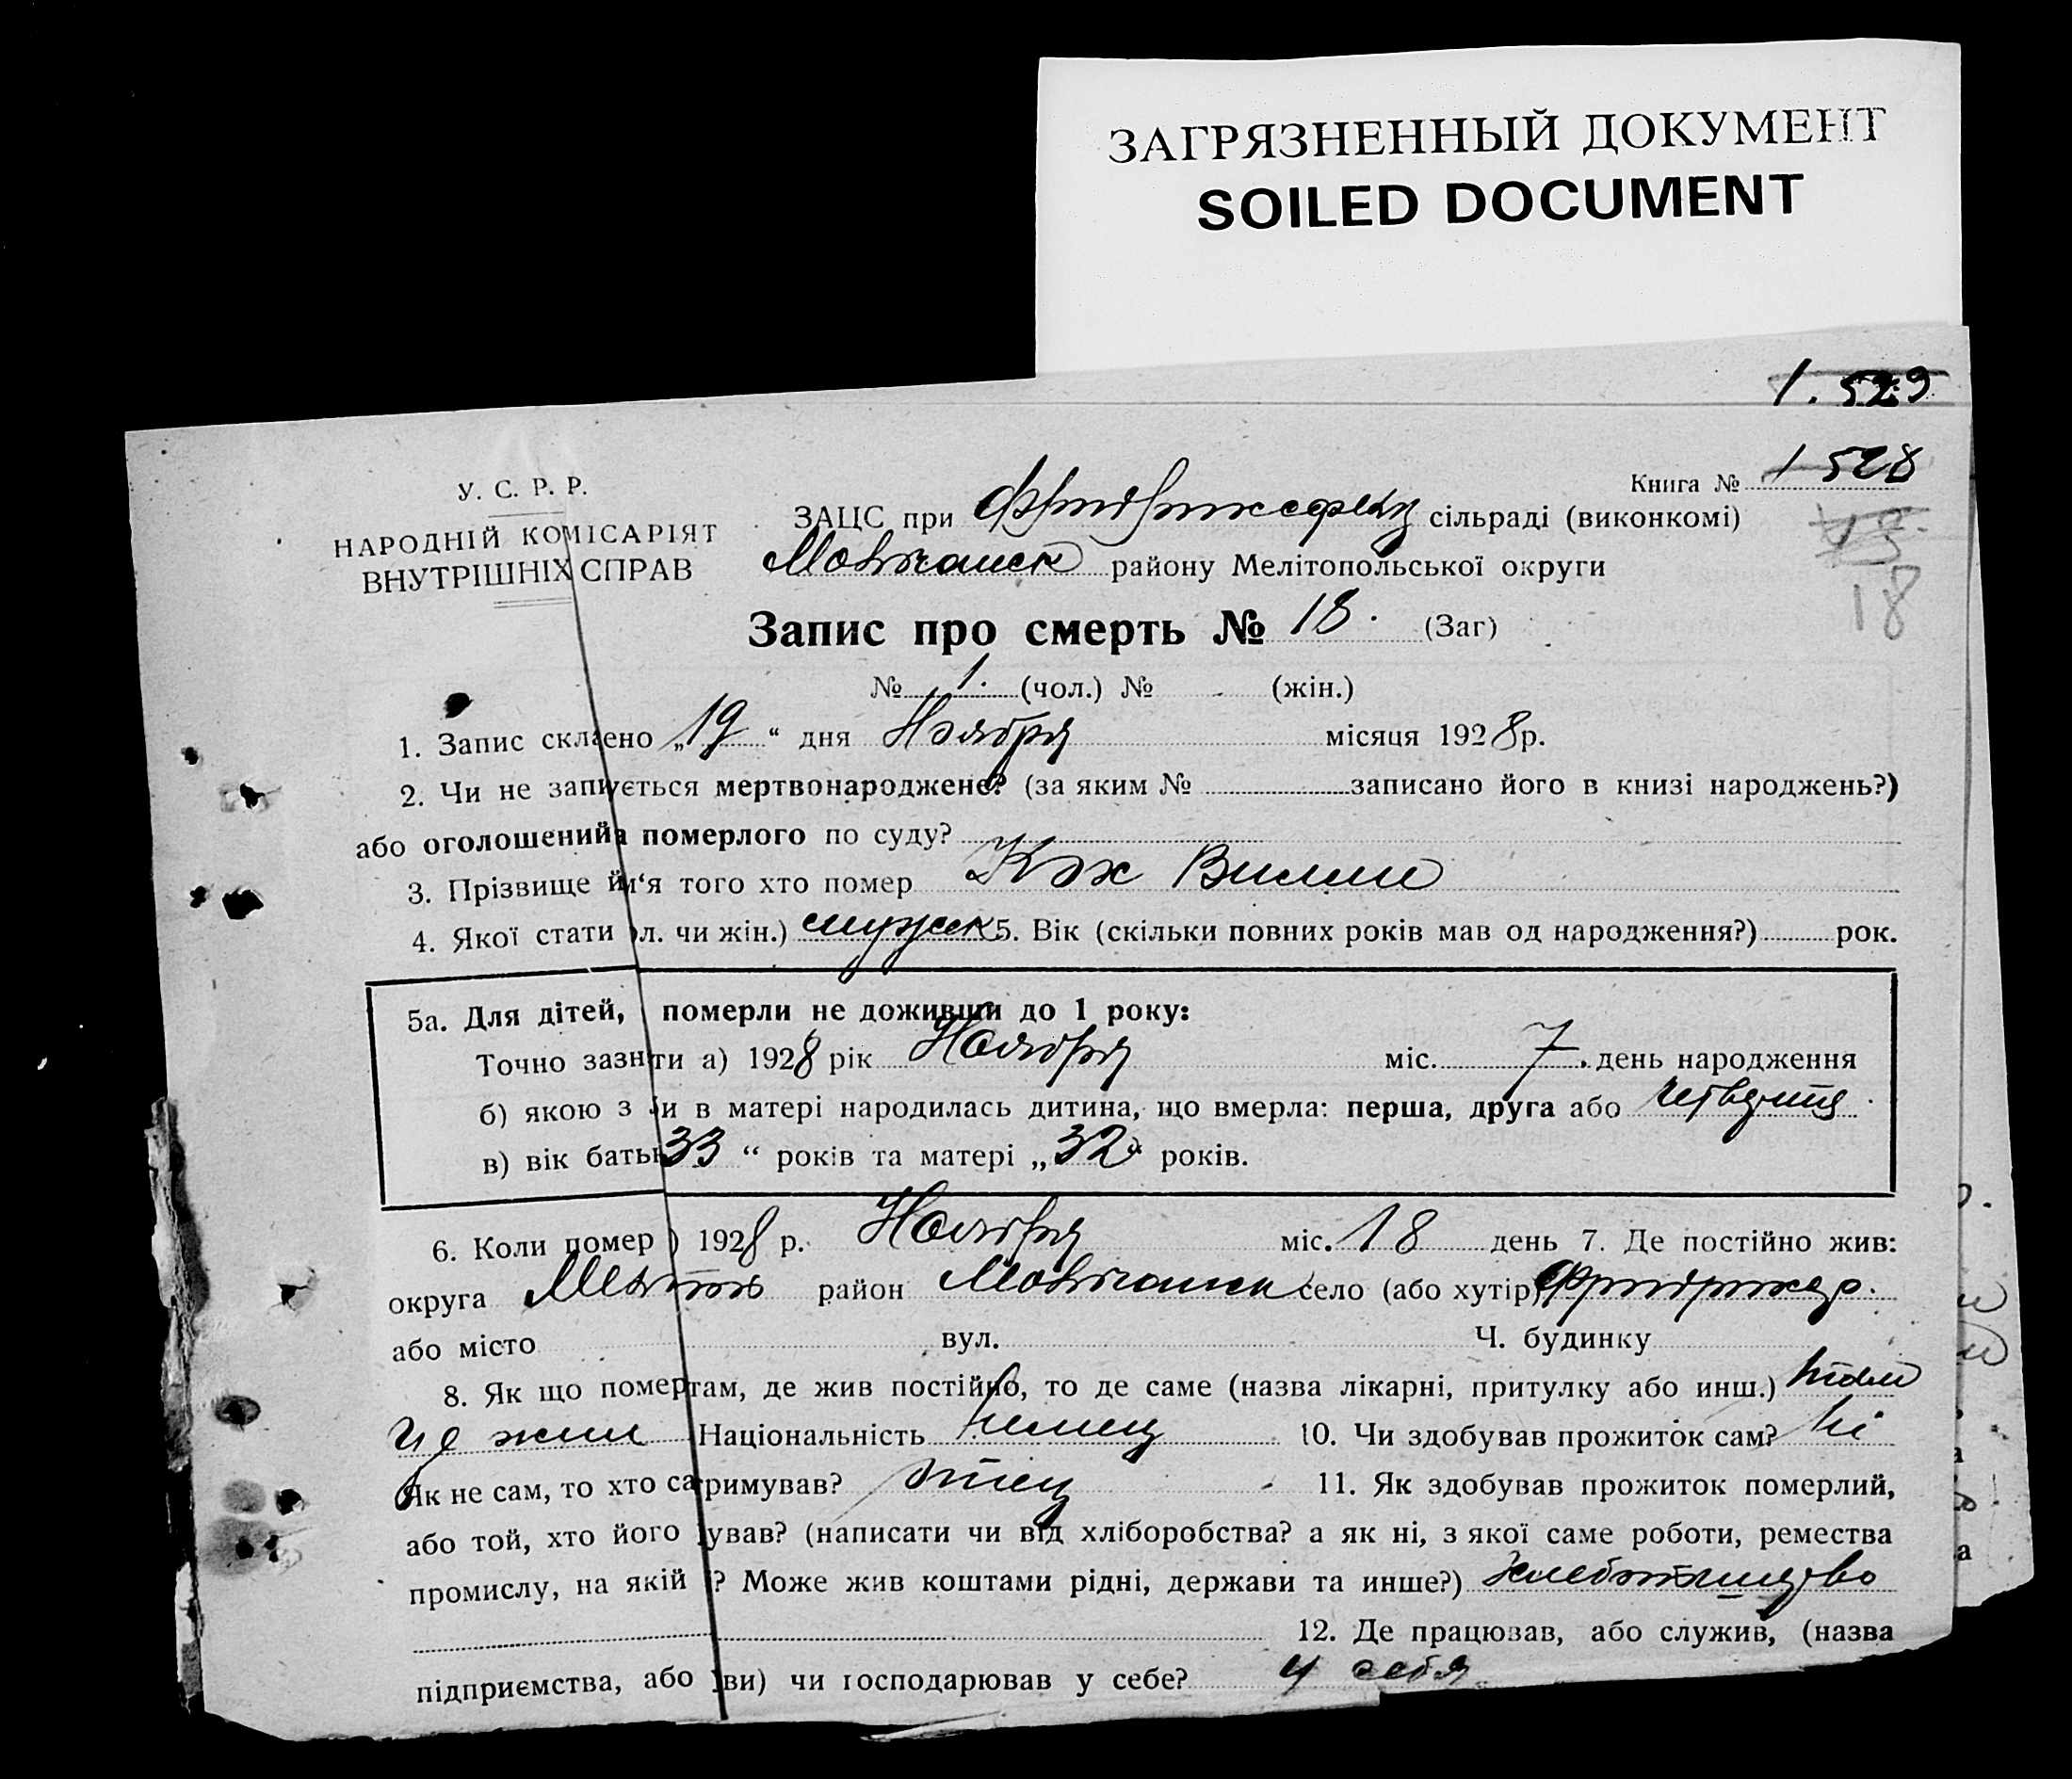 ЗАГРЯЗНЕННЫЙ ДОКУМЕНТ
SOILED DOCUMENT
1.529
Книга № 1528
У. С. Р. Р.
НАРОДНІЙ КОМІСАРІЯТ
ВНУТРІШНІХ СПРАВ
ЗАЦС при сільраді (виконкомі)
району Мелітопольської округи
18
Запис про смерть № 18. (Заг)
№ 1. (чол.) № (жін.)
1. Запис склаено „19“ дня Ноября місяця 1928 р.
2. Чи не запиується мертвонароджене? (за яким № записано його в книзі народжень?)
або оголошений а померлого по суду?
3. Прізвище й м‘я того хто помер Кох Вилли
4. Якої стати ол. чи жін.) мужск 5. Вік (скільки повних років мав од народження?) рок.
5а. Для дітей, померли не доживши до 1 року:
Точно зазн ти а) 1928 рік Ноября міс. 7. день народження
б) якою з ди в матері народилась дитина, що вмерла: перша, друга або
в) вік батьк 33 “ років та матері „32“ років.
6. Коли помер ) 1928 р. Ноября міс. 18 день 7. Де постійно жив:
округа район село (або хутір)
або місто вул. Ч. будинку
8. Як що помер там, де жив постійно, то де саме (назва лікарні, притулку або инш.) там
где жил Національність немец 10. Чи здобував прожиток сам? ні
Як не сам, то хто са римував? отец 11. Як здобував прожиток померлий,
або той, хто його ував? (написати чи від хліборобства? а як ні, з якої саме роботи, ремества
промислу, на якій ? Може жив коштами рідні, держави та инше?)
12. Де працював, або служив, (назва
підприємства, або ви) чи господарював у себе? у себя